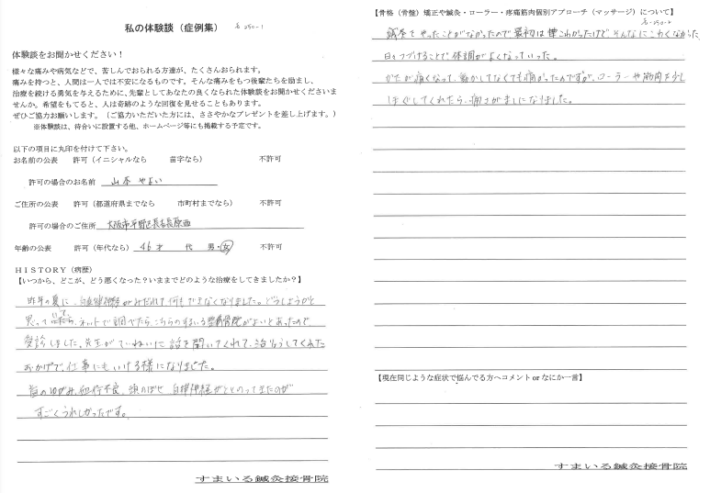 私の体験談（症例集）
体験談をお聞かせください！
様々な痛みや病気などで、苦しんでおられる方達が、たくさんおられます。
痛みを持つと、人間は一人では不安になるものです。そんな痛みをもつ後輩たちを励まし、
治療を続ける勇気を与えるために、先輩としてあなたの良くなられた体験談をお聞かせくださいま
せんか。希望をもてると、人は奇跡のような回復を見せることもあります。
ぜひご協力お願いします。（ご協力いただいた方には、ささやかなプレゼントを差し上げます。）
※体験談は、待合いに設置する他、ホームページ等にも掲載する予定です。
以下の項目に丸印を付けて下さい。
お名前の公表　許可（イニシャルなら　苗字なら）　不許可
許可の場合のお名前　山本 やよい
ご住所の公表　許可（都道府県までなら　市町村までなら）　不許可
許可の場合のご住所　大阪市平野区長吉長原西
年齢の公表　許可（年代なら）　46才　代　男・女　不許可
ＨＩＳＴＯＲＹ（病歴）
【いつから、どこが、どう悪くなった？いままでどのような治療をしてきましたか？】
昨年の夏に、自律神経がみだれて何もできなくなりました。どうしようかと
思って ネットで調べたら、こちらのすまいる整骨院がよいとあったので
受診しました。先生がていねいに話を聞いてくれて、治りょうしてくれた
おかげで、仕事にもいける様になりました。
血行不良、頭のはせ 自律神経がととのってきたのが
すごくうれしかったです。
すまいる鍼灸接骨院
【骨格（骨盤）矯正や鍼灸・ローラー・疼痛筋肉個別アプローチ（マッサージ）について】
鍼灸をやったことがなかったので最初は こわかったけど、そんなにこわくなかった
つづけることで体調がよくなっていった。
かたが痛くなって、動かしてなくても痛かったのですが、ローラーや筋肉を少し
ほぐしてくれたら、痛さがましになりました。
【現在同じような症状で悩んでる方へコメント or なにか一言】
すまいる鍼灸接骨院